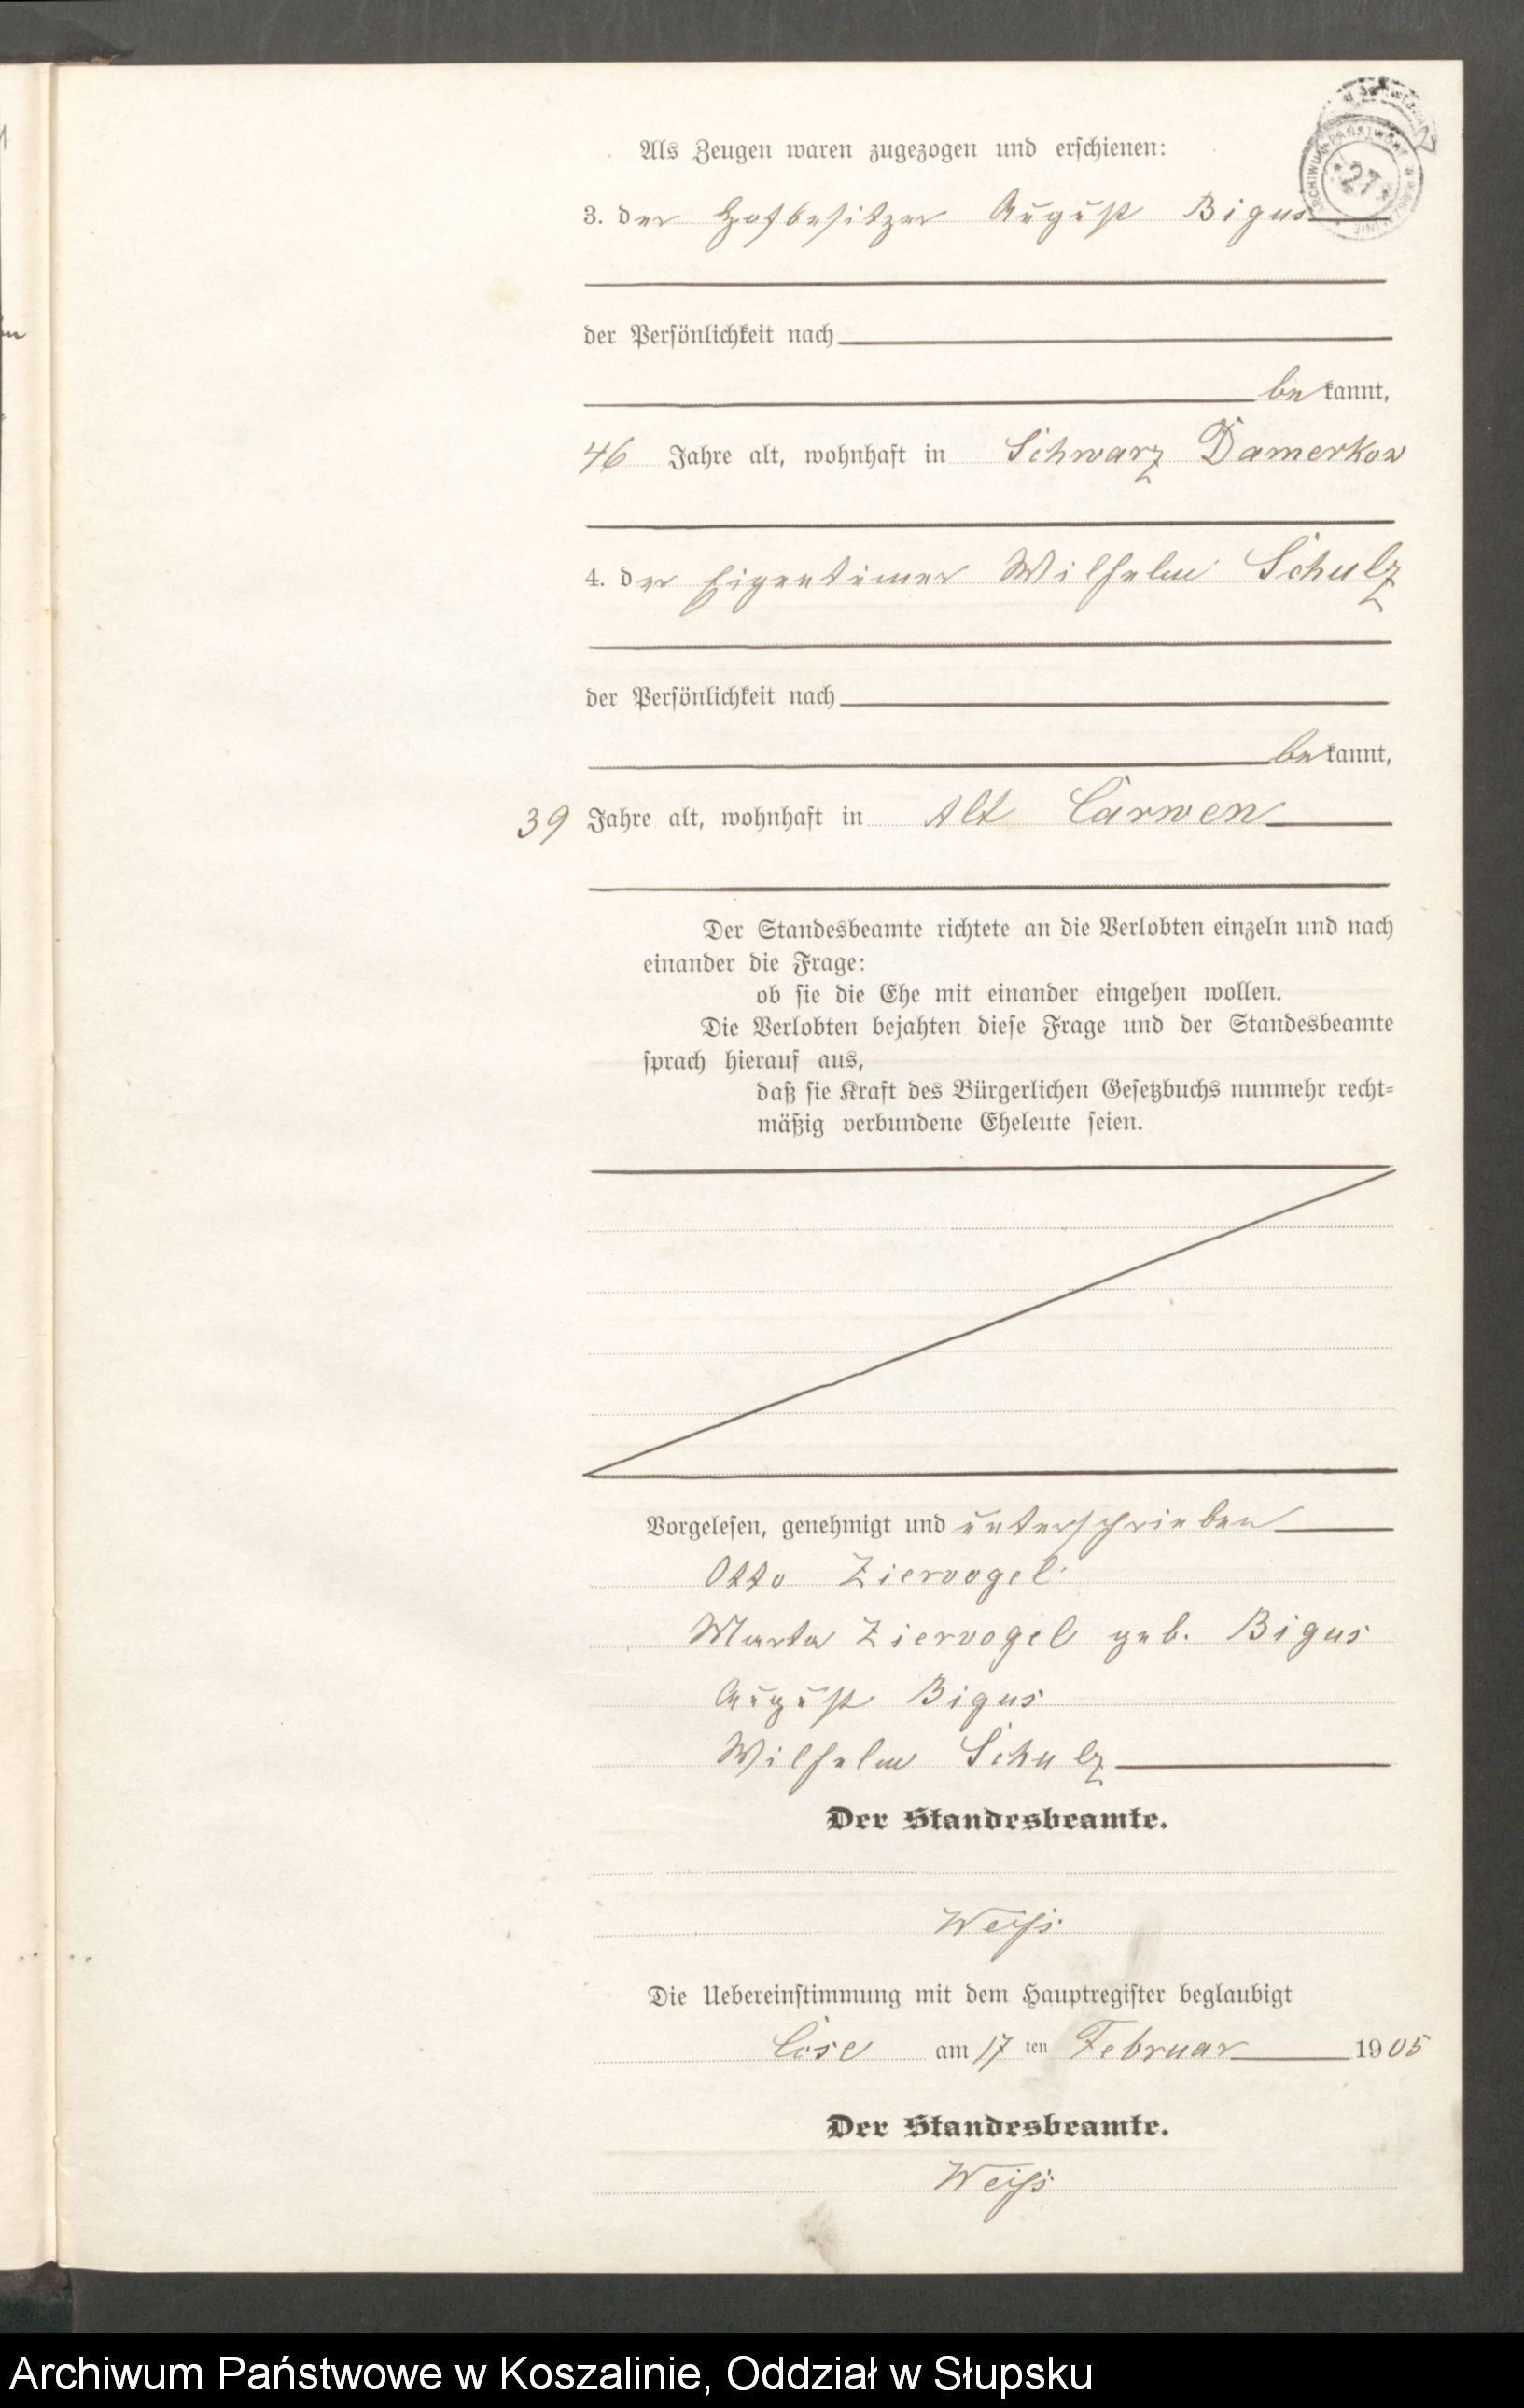 Als Zeugen waren zugezogen und erschienen:
3. der Hofbesitzer August Bigus
der Persönlichkeit nach
bekannt,
46 Jahre alt, wohnhaft in Schwarz Damerkow
4. der Eigentümer Wilhelm Schulz
der Persönlichkeit nach
bekannt,
39 Jahre alt, wohnhaft in Alt Carwen
Der Standesbeamte richtete an die Verlobten einzeln und nach
einander die Frage:
ob sie die Ehe mit einander eingehen wollen.
Die Verlobten bejahten diese Frage und der Standesbeamte
sprach hierauf aus,
daß sie Kraft des Bürgerlichen Gesetzbuchs nunmehr recht-
mäßig verbundene Eheleute seien.
Vorgelesen, genehmigt und unterschrieben
Otto Ziervogel
Marta Ziervogel geb. Bigus
August Bigus
Wilhelm Schulz
Der Standesbeamte.
Weiß
Die Uebereinstimmung mit dem Hauptregister beglaubigt
am 17 ten Februar 1905
Der Standesbeamte.
Weiß
Archiwum Państwowe w Koszalinie, Oddział w Słupsku